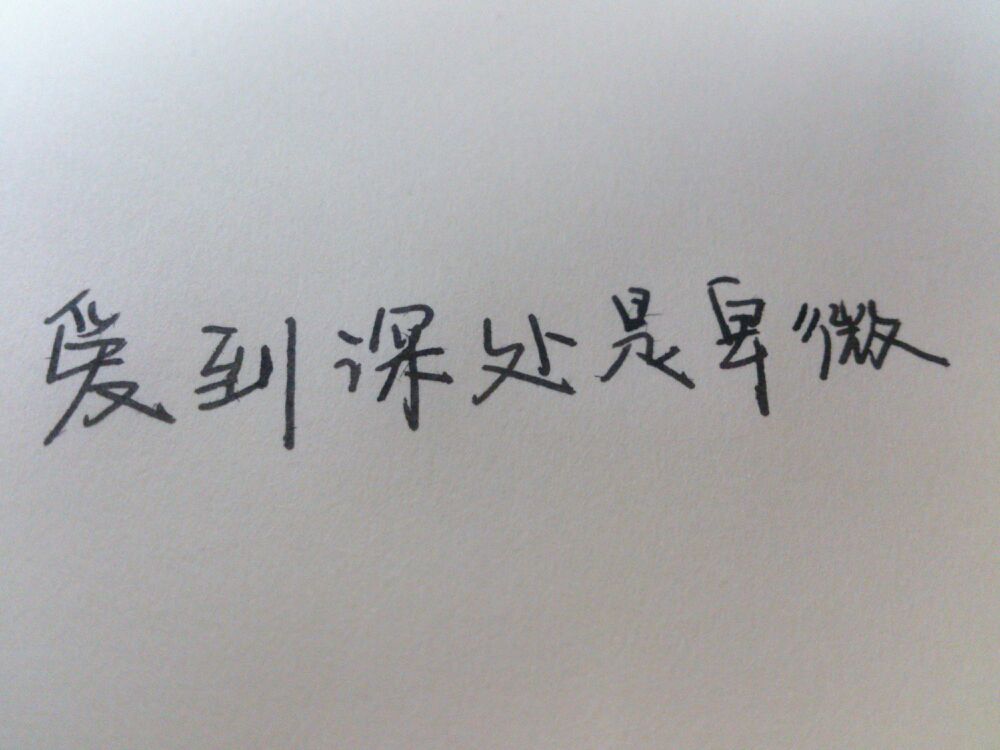 爱到深处是卑微